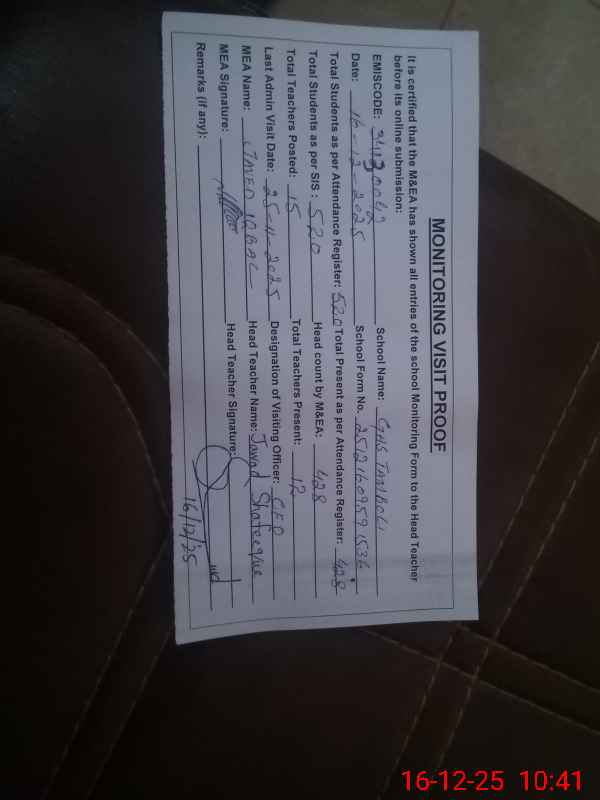 MONITORING VISIT PROOF
It is certified that the M&EA has shown all entries of the school Monitoring Form to the Head Teacher
before its online submission:
EMISCODE: 34130042 School Name: GHS
Date: 16-12-2025 School Form No.
Total Students as per Attendance Register: 520 Total Present as per Attendance Register: 428
Total Students as per SIS: 520 Head count by M&EA: 428
Total Teachers Posted: 15 Total Teachers Present: 12
Last Admin Visit Date: 25-11-2025 Designation of Visiting Officer: CEO
MEA Name: IQBAL Head Teacher Name: Jawad Shafeeque
MEA Signature: Head Teacher Signature:
Remarks (if any): 16/12/25
16-12-25 10:41